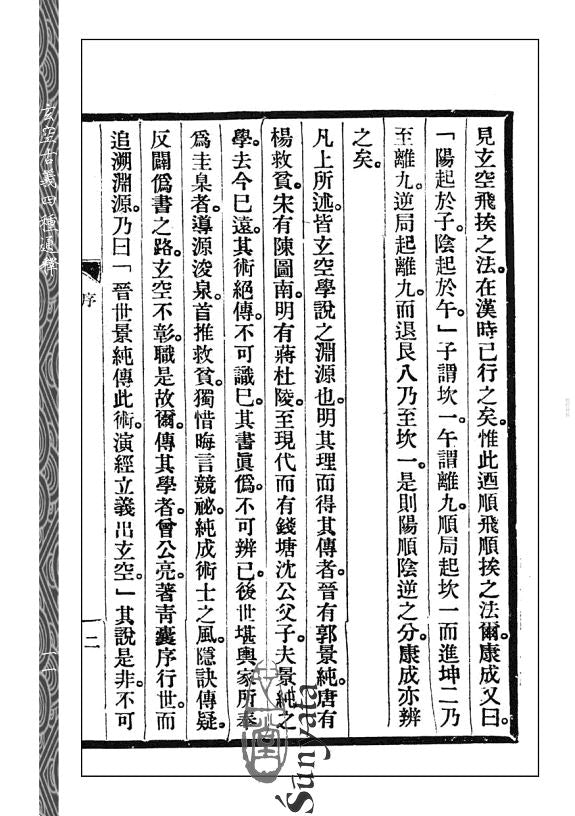 見玄空飛挨之法。在漢時已行之矣。惟此迺順飛順挨之法爾。康成又曰。
「陽起於子。陰起於午。」子謂坎一。午謂離九。順局起坎一而進坤二乃
至離九。逆局起離九。而退艮八乃至坎一。是則陽順陰逆之分。康成亦辨
之矣。
凡上所述。皆玄空學說之淵源也。明其理而得其傳者。晉有郭景純。唐有
楊救貧。宋有陳圖南。明有蔣杜陵。至現代而有錢塘沈公父子。夫景純之
學。去今已遠。其術絕傳。不可識已。其書眞僞。不可辨已。後世堪輿家所奉
爲圭臬者。導源浚泉。首推救貧。獨惜晦言競祕。純成術士之風。隱訣傳疑。
反闢僞書之路。玄空不彰。職是故爾。傳其學者。曾公亮。著靑囊序行世。而
追溯淵源。乃曰「晉世景純傳此術。演經立義出玄空。」其說是非。不可
序
二
玄空古義四種通釋
一一
Śūnyatā